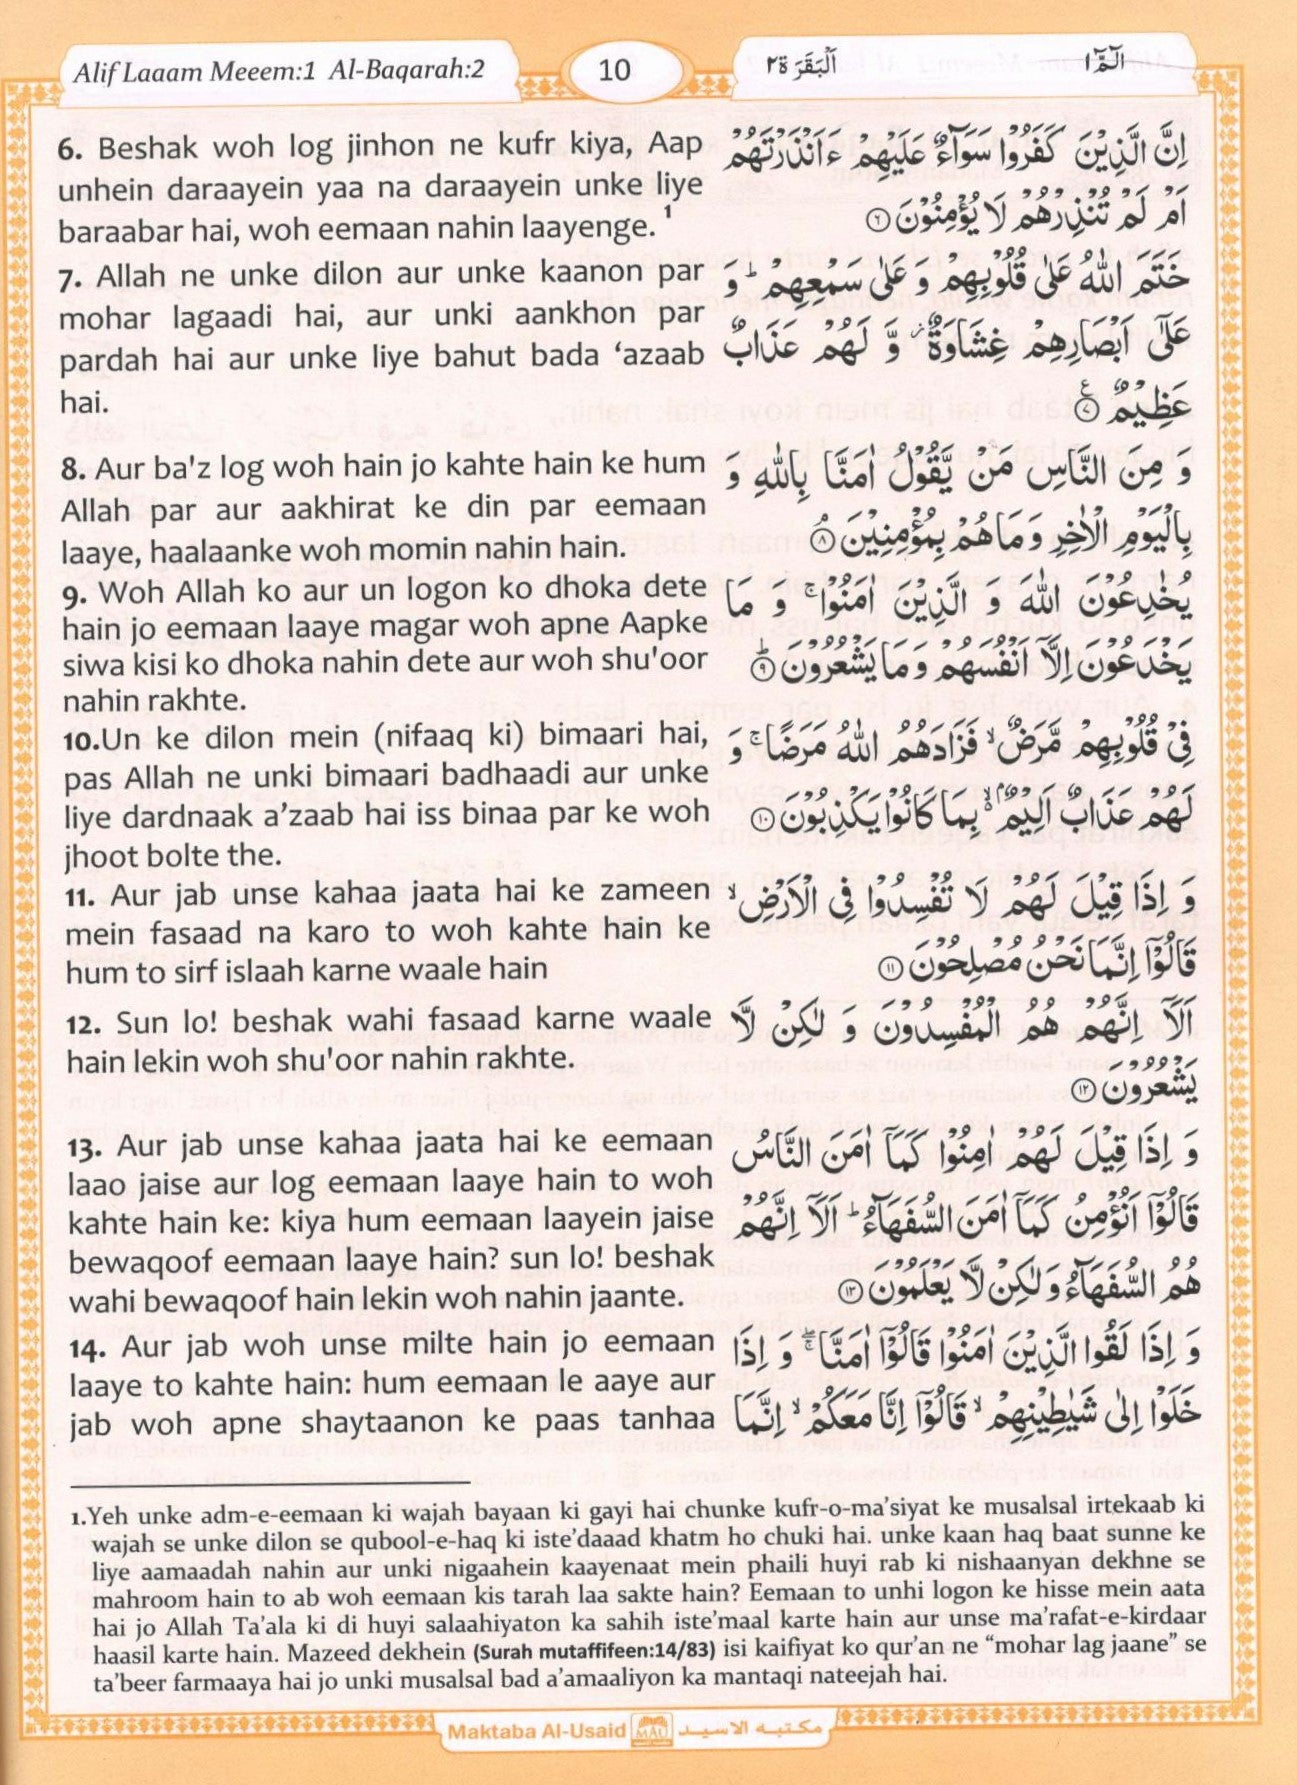 Alif Laaam Meeem:1 Al-Baqarah:2
10
اَلْبَقَرَة٢
الٓمّٓ١
6. Beshak woh log jinhon ne kufr kiya, Aap
unhein daraayein yaa na daraayein unke liye
baraabar hai, woh eemaan nahin laayenge.¹
اِنَّ الَّذِيْنَ كَفَرُوْا سَوَآءٌ عَلَيْهِمْ ءَاَنْذَرْتَهُمْ
اَمْ لَمْ تُنْذِرْهُمْ لَا يُؤْمِنُوْنَ ۶
7. Allah ne unke dilon aur unke kaanon par
mohar lagaadi hai, aur unki aankhon par
pardah hai aur unke liye bahut bada ‘azaab
hai.
خَتَمَ اللّٰهُ عَلٰى قُلُوْبِهِمْ وَ عَلٰى سَمْعِهِمْ ؕ وَ
عَلٰٓى اَبْصَارِهِمْ غِشَاوَةٌ ؗ وَّ لَهُمْ عَذَابٌ
عَظِيْمٌ ۷
8. Aur ba'z log woh hain jo kahte hain ke hum
Allah par aur aakhirat ke din par eemaan
laaye, haalaanke woh momin nahin hain.
وَ مِنَ النَّاسِ مَنْ يَّقُوْلُ اٰمَنَّا بِاللّٰهِ وَ
بِالْيَوْمِ الْاٰخِرِ وَ مَا هُمْ بِمُؤْمِنِيْنَ ۘ ۸
9. Woh Allah ko aur un logon ko dhoka dete
hain jo eemaan laaye magar woh apne Aapke
siwa kisi ko dhoka nahin dete aur woh shu'oor
nahin rakhte.
يُخٰدِعُوْنَ اللّٰهَ وَ الَّذِيْنَ اٰمَنُوْا ۚ وَ مَا
يَخْدَعُوْنَ اِلَّاۤ اَنْفُسَهُمْ وَ مَا يَشْعُرُوْنَ ؕ ۹
10.Un ke dilon mein (nifaaq ki) bimaari hai,
pas Allah ne unki bimaari badhaadi aur unke
liye dardnaak a’zaab hai iss binaa par ke woh
jhoot bolte the.
فِيْ قُلُوْبِهِمْ مَّرَضٌ ۙ فَزَادَهُمُ اللّٰهُ مَرَضًا ۚ وَ
لَهُمْ عَذَابٌ اَلِيْمٌۢ ۙ۬ بِمَا كَانُوْا يَكْذِبُوْنَ ۱۰
11. Aur jab unse kahaa jaata hai ke zameen
mein fasaad na karo to woh kahte hain ke
hum to sirf islaah karne waale hain
وَ اِذَا قِيْلَ لَهُمْ لَا تُفْسِدُوْا فِي الْاَرْضِ ۙ
قَالُوْۤا اِنَّمَا نَحْنُ مُصْلِحُوْنَ ۱۱
12. Sun lo! beshak wahi fasaad karne waale
hain lekin woh shu'oor nahin rakhte.
اَلَاۤ اِنَّهُمْ هُمُ الْمُفْسِدُوْنَ وَ لٰكِنْ لَّا
يَشْعُرُوْنَ ۱۲
13. Aur jab unse kahaa jaata hai ke eemaan
laao jaise aur log eemaan laaye hain to woh
kahte hain ke: kiya hum eemaan laayein jaise
bewaqoof eemaan laaye hain? sun lo! beshak
wahi bewaqoof hain lekin woh nahin jaante.
وَ اِذَا قِيْلَ لَهُمْ اٰمِنُوْا كَمَاۤ اٰمَنَ النَّاسُ
قَالُوْۤا اَنُؤْمِنُ كَمَاۤ اٰمَنَ السُّفَهَآءُ ؕ اَلَاۤ اِنَّهُمْ
هُمُ السُّفَهَآءُ وَ لٰكِنْ لَّا يَعْلَمُوْنَ ۱۳
14. Aur jab woh unse milte hain jo eemaan
laaye to kahte hain: hum eemaan le aaye aur
jab woh apne shaytaanon ke paas tanhaa
وَ اِذَا لَقُوا الَّذِيْنَ اٰمَنُوْا قَالُوْۤا اٰمَنَّا ۖۚ وَ اِذَا
خَلَوْا اِلٰى شَيٰطِيْنِهِمْ ۙ قَالُوْۤا اِنَّا مَعَكُمْ ۙ اِنَّمَا
1.Yeh unke adm-e-eemaan ki wajah bayaan ki gayi hai chunke kufr-o-ma’siyat ke musalsal irtekaab ki
wajah se unke dilon se qubool-e-haq ki iste’daaad khatm ho chuki hai. unke kaan haq baat sunne ke
liye aamaadah nahin aur unki nigaahein kaayenaat mein phaili huyi rab ki nishaanyan dekhne se
mahroom hain to ab woh eemaan kis tarah laa sakte hain? Eemaan to unhi logon ke hisse mein aata
hai jo Allah Ta’ala ki di huyi salaahiyaton ka sahih iste’maal karte hain aur unse ma’rafat-e-kirdaar
haasil karte hain. Mazeed dekhein (Surah mutaffifeen:14/83) isi kaifiyat ko qur’an ne “mohar lag jaane” se
ta’beer farmaaya hai jo unki musalsal bad a’amaaliyon ka mantaqi nateejah hai.
Maktaba Al-Usaid MAU مكتبه الاسيد